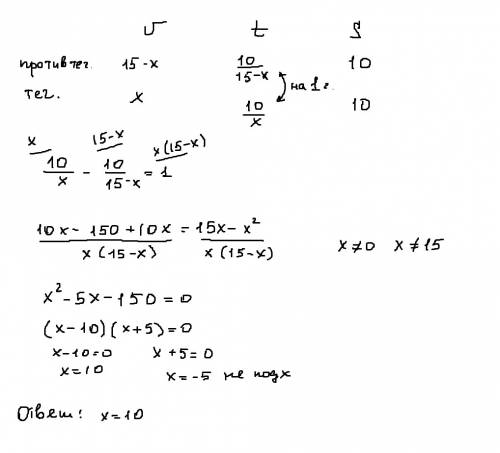 v t S
против теч. 15-x 10/(15-x) 10
теч. x 10/x 10
на 1 г.
x 15-x x(15-x)
10/x - 10/(15-x) = 1
(10x - 150 + 10x)/(x(15-x)) = (15x - x²)/(x(15-x)) x≠0 x≠15
x² - 5x - 150 = 0
(x-10)(x+5) = 0
x-10=0 x+5=0
x=10 x=-5 не подх
Ответ: x=10